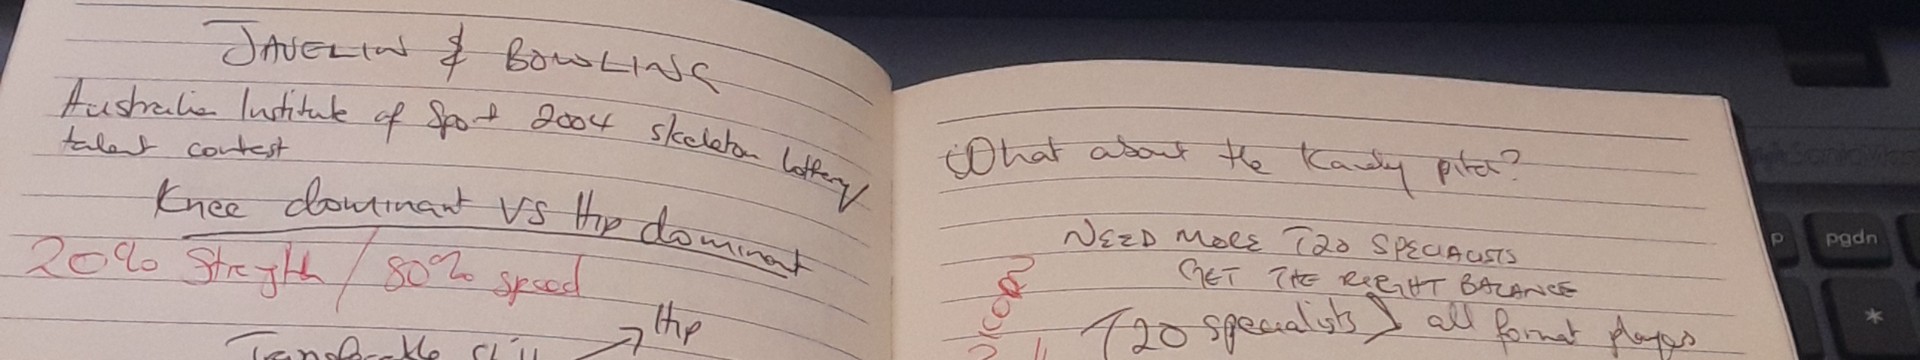 JAVELIN & BOWLING
Australia Institute of Sport 2004 skeleton lottery
talent contest
Knee dominant VS Hip dominant
20% Strength / 80% speed
Hip
What about the Kandy pitch?
NEED MORE T20 SPECIALISTS
GET THE RIGHT BALANCE
T20 specialists > all format players
p
pgdn
*